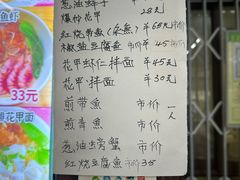 鱼虾
33元
花甲面
葱油蛏子
爆炒花甲 28元
红烧带鱼(杂鱼) 半68元 市价
椒盐豆腐鱼 半45元 市价
花甲虾仁拌面 半45元
花甲 拌面 半30元
煎带魚 市价 一人
煎青魚 市价
葱油螃蟹 市价
红烧豆腐魚 市价35